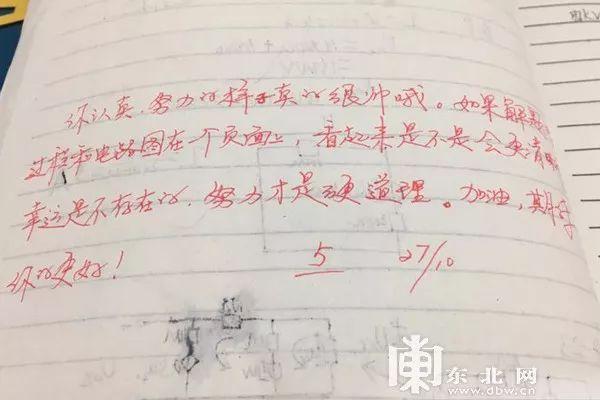 你认真、努力的样子真的很帅哦。如果解题
过程和电路图在一个页面上，看起来是不是会更清晰
幸运是不存在的，努力才是硬道理。加油，期待
你的更好！
5 27/10
東北网
www.dbw.cn